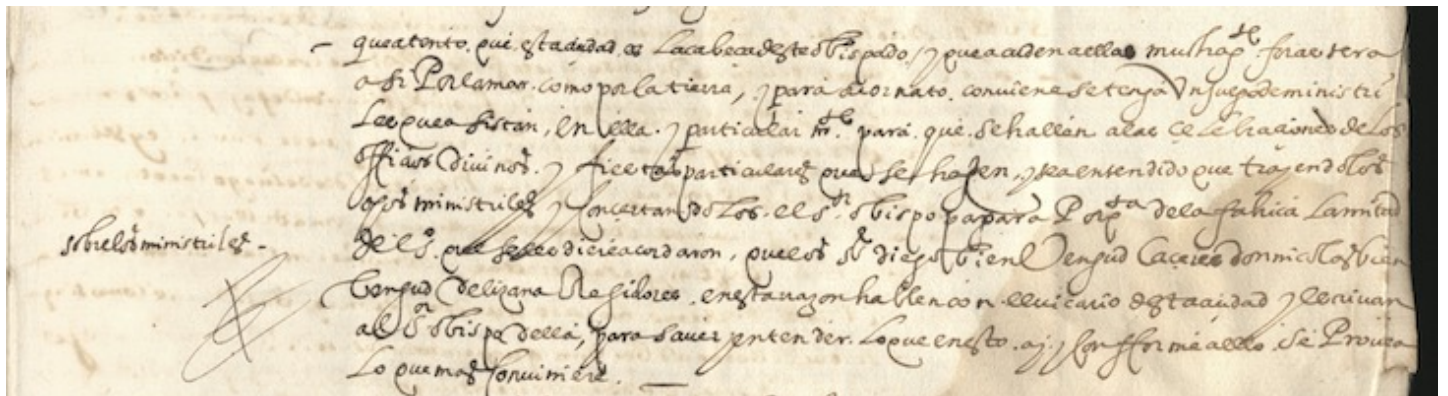 que atento. que esta ciudad es la cabeca deste obispado, y que acuden a ella mucha g.te forastera
asi Por la mar. como por la tierra, y para su ornato. conviene se tenga Un juego de ministri
les que asistan, en ella. y particular m.te para. que. se hallen a las celebraciones de los
officios Divinos. y fiestas particulares que se hazen, y sea entendido que trayendo los
dhos ministriles y concertandolos. el s.r obispo pagara Por q.ta de la fabrica La mitad
sobre los ministriles -
de lo. que se les diere acordaron, que los ss.es diego bien Vengud Caceres don nicolas bien
bengud De lizana Regidores. en esta razon hablen con el vicario desta ciudad y escrivan
al s.or obispo della, para saver y entender. lo que en esto. ay, y conforme a ello. se Provea
Lo que mas conviniere.